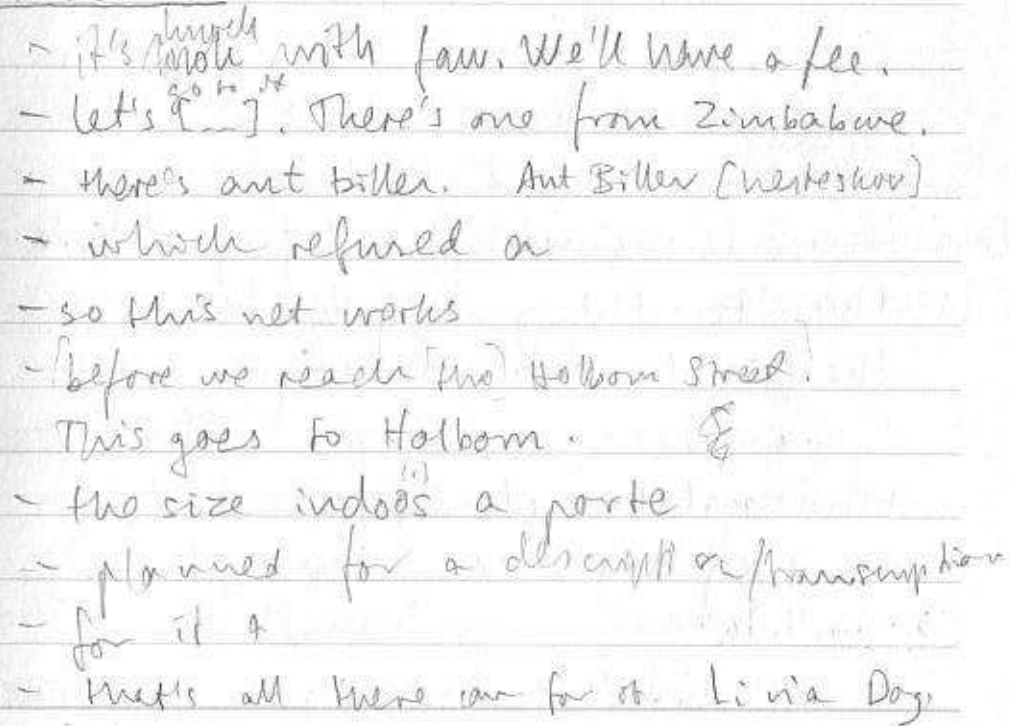 - it's with faw. We'll have a fee.
- let's [...]. There's one from Zimbabwe.
- there's ant biller. Ant Biller
- which refused a
- so this net works
- [before we reach [the] Holborn Street.]
This goes to Holborn.
- the size indoos (!) a porte
- planned for a description/transcription
- for it a
- that's all there for it. Livia Dog.